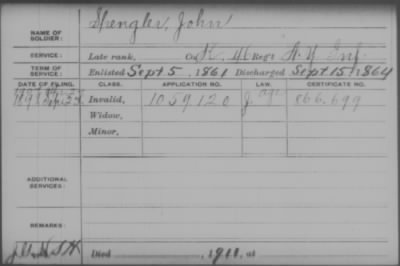 NAME OF SOLDIER: Spengler, John
SERVICE: Late rank, Co. K, 46 Reg't N.Y. Inf.
TERM OF SERVICE: Enlisted Sept 5, 1861 Discharged Sept 15, 1864
DATE OF FILING. CLASS. APPLICATION NO. LAW. CERTIFICATE NO.
Invalid, 1059120 866,699
Widow,
Minor,
ADDITIONAL SERVICES:
REMARKS:
Died 1911, at